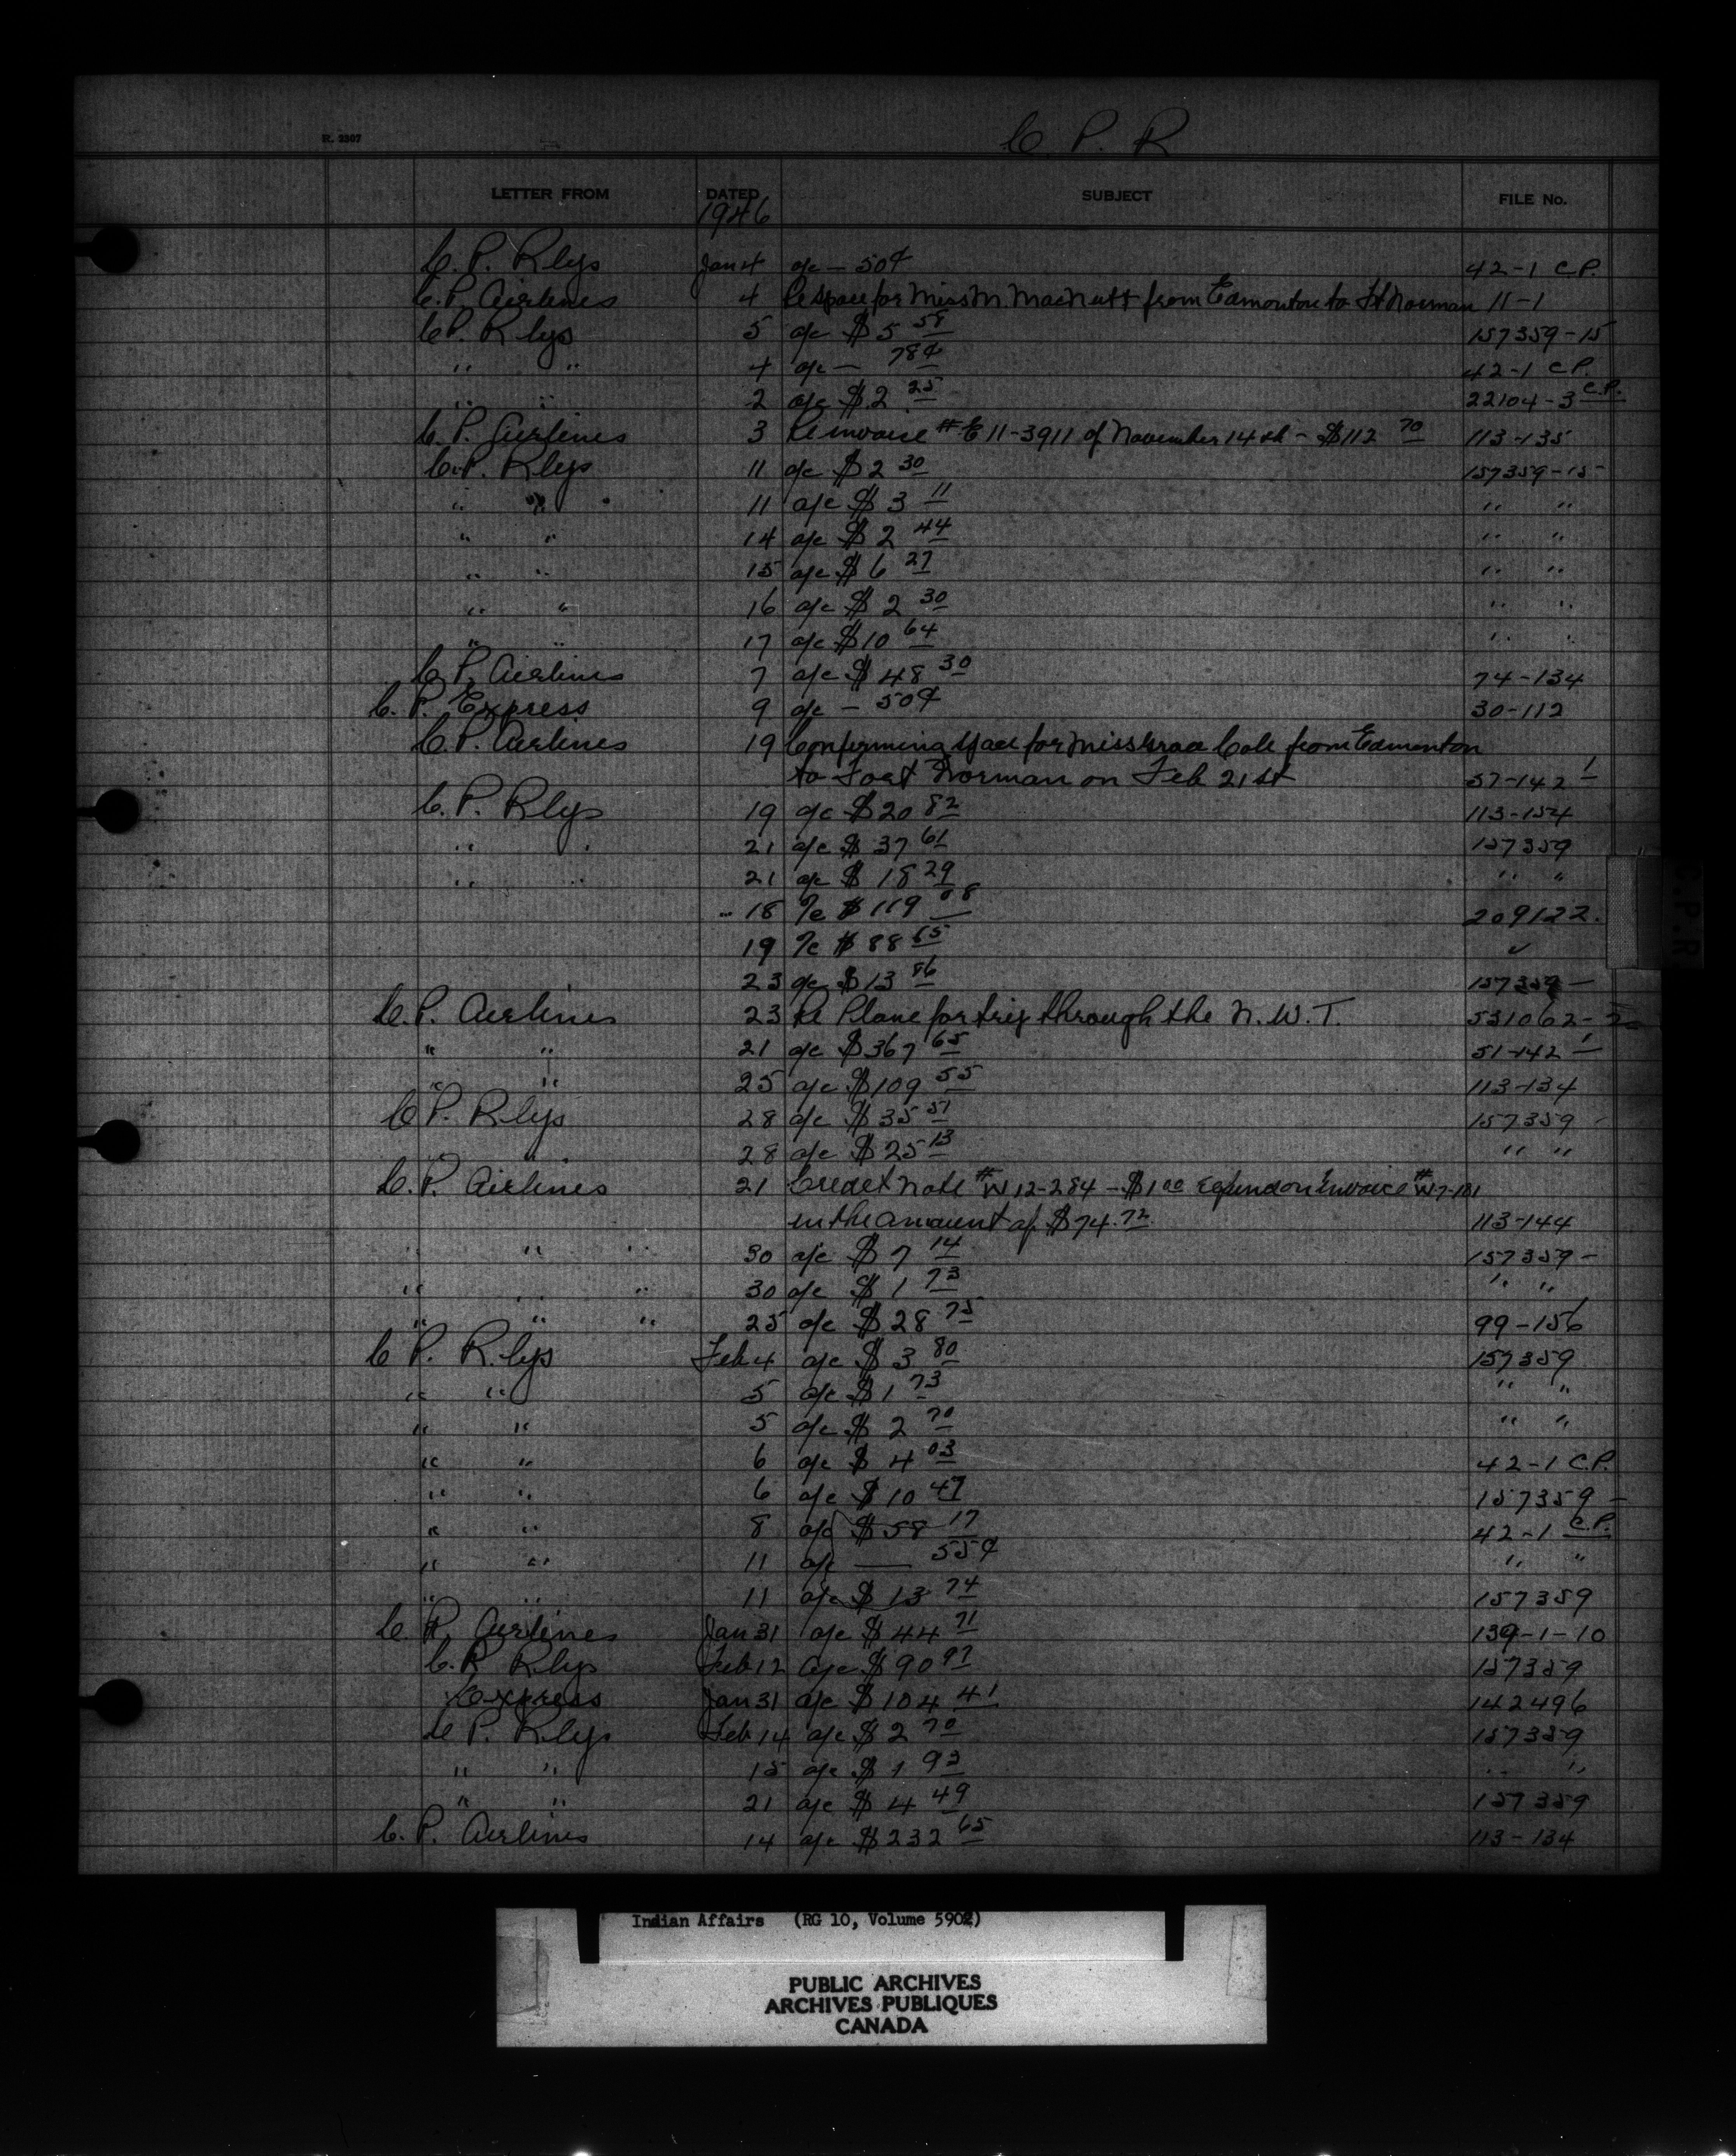 C. P. R
R. 2307
LETTER FROM DATED SUBJECT FILE No.
1946
C. P. Rlys Jan 4 a/c — 50¢ 42-1 C.P.
C. P. Airlines 4 Re space for Miss M. MacNutt from Edmonton to Ft Norman 11-1
C P. Rlys 5 a/c $5 58 157359-15
" " 4 a/c — 78¢ 42-1 C.P.
" " 2 a/c $2 25 22104-3 C.P.
C. P. Airlines 3 Re invoice # E 11-3911 of November 14th - $112 70 113-135
C. P. Rlys 11 a/c $2 30 157359-15
" " 11 a/c $3 11 " "
" " 14 a/c $2 44 " "
" " 15 a/c $6 27 " "
" " 16 a/c $2 30 " "
" " 17 a/c $10 64 " "
C. P. Airlines 7 a/c $48 30 74-134
C. P. Express 9 a/c — 50¢ 30-112
C. P. Airlines 19 Confirming space for Miss Grace Cole from Edmonton
to Fort Norman on Feb 21st 57-142 1
C. P. Rlys 19 a/c $20 82 113-154
" " 21 a/c $37 61 157359
" " 21 a/c $18 29 " "
18 %c $119 08 209122.
19 %c $88 65 ✓
23 a/c $13 86 157359 —
C. P. Airlines 23 Re Plane for trip through the N. W. T. 531062-
" " 21 a/c $367 65 51-142 1
" " 25 a/c $109 55 113-134
C P. Rlys 28 a/c $35 51 157359 -
28 a/c $25 13 " "
C. P. Airlines 21 Credit note # W 12-284 - $1 00 refund on Invoice # W 7-181
in the amount of $74.72 113-144
" " " 30 a/c $7 14 157359 -
" " " 30 a/c $1 73 " "
" " " 25 a/c $28 75 99-156
C P. Rlys Feb 4 a/c $3 80 157359
" " 5 a/c $1 73 " "
" " 5 a/c $2 70 " "
" " 6 a/c $4 03 42-1 C.P.
" " 6 a/c $10 47 157359 -
" " 8 a/c $58 17 42-1 C.P.
" " 11 a/c — 55¢ " "
" " 11 a/c $13 74 157359
C. P. Airlines Jan 31 a/c $44 71 139-1-10
C. P. Rlys Feb 12 a/c $90 97 157359
Express Jan 31 a/c $104 41 142496
C P. Rlys Feb 14 a/c $2 70 157359
" " 15 a/c $1 93 " "
" " 21 a/c $4 49 157359
C. P. Airlines 14 a/c $232 65 113-134
C.P.R
Indian Affairs (RG 10, Volume 5902)
PUBLIC ARCHIVES
ARCHIVES PUBLIQUES
CANADA